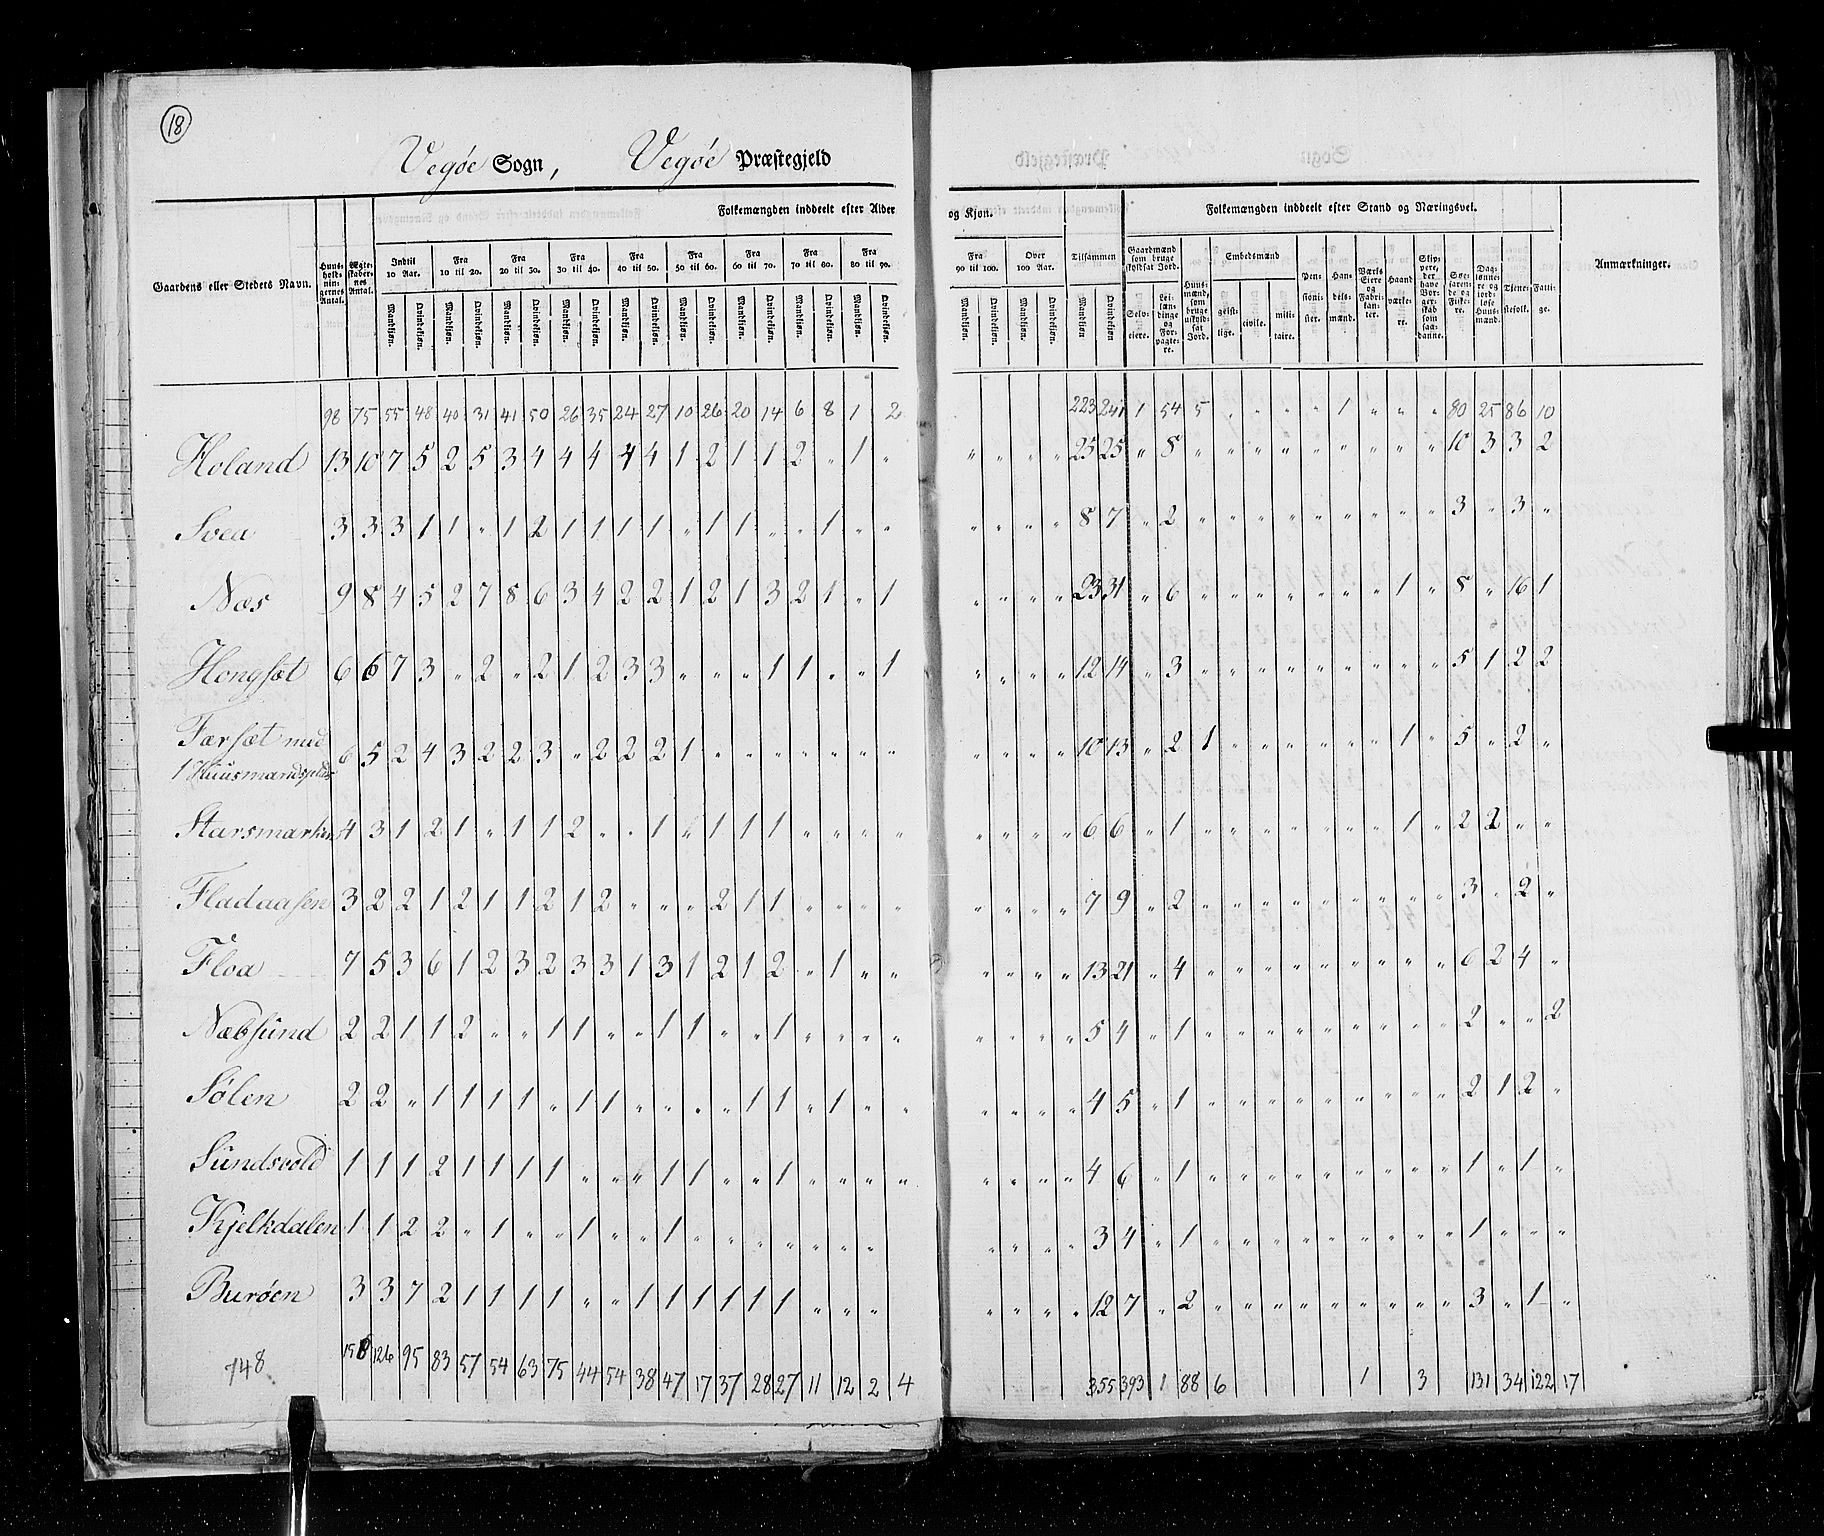 18
Vegøe Sogn, Vegøe Præstegjeld
Gaardens eller Stedets Navn. Huusholdningernes Antal. Ægteskabernes Antal. Folkemængden inddeelt efter Alder og Kjøn. Folkemængden inddeelt efter Stand og Næringsvei. Anmærkninger.
Indtil 10 Aar. Fra 10 til 20. Fra 20 til 30. Fra 30 til 40. Fra 40 til 50. Fra 50 til 60. Fra 60 til 70. Fra 70 til 80. Fra 80 til 90. Fra 90 til 100. Over 100 Aar. Tilsammen Gaardmænd som bruge skyldsat Jord. Huusmænd, som bruge uskyldsat Jord. Embedsmænd Pensionister. Handelsmænd. Værks Eiere og Fabrikanter. Haandværkere. Skippere, der have Borgerskab som saadanne. Søefarende og Fiskere. Dagslønnere og jordløse Huusmænd. Tjenestefolk. Fattige.
Mandkjøn. Qvindekjøn. Mandkjøn. Qvindekjøn. Mandkjøn. Qvindekjøn. Mandkjøn. Qvindekjøn. Mandkjøn. Qvindekjøn. Mandkjøn. Qvindekjøn. Mandkjøn. Qvindekjøn. Mandkjøn. Qvindekjøn. Mandkjøn. Qvindekjøn. Mandkjøn. Qvindekjøn. Mandkjøn. Qvindekjøn. Mandkjøn Qvindekjøn. Selveiere. Leilændinge og Forpagtere. geistlige. civile. militaire.
98 75 55 48 40 31 41 50 26 35 24 27 10 26 20 14 6 8 1 2 223 241 1 54 5 " " " " 1 " " " 80 25 86 10
Holand 13 10 7 5 2 5 3 4 4 4 4 4 1 2 1 1 2 " 1 " " " " " 25 25 " 8 " " " " " " " " " 10 3 3 2
Svea 3 3 3 1 1 " 1 2 1 1 1 1 " 1 1 " " 1 " " " " " " 8 7 " 2 " " " " " " " " " 3 " 3 "
Næs 9 8 4 5 2 7 8 6 3 4 2 2 1 2 1 3 2 1 " 1 " " " " 23 31 " 6 " " " " " " " 1 " 8 " 16 1
Hongsæt 6 6 7 3 " 2 " 2 1 2 3 3 " " " 1 1 " " 1 " " " " 12 14 " 3 " " " " " " " " " 5 1 2 2
Færsæt med
1 Huusmandsplads 6 5 2 4 3 2 2 3 " 2 2 2 1 " " " " " " " " " " " 10 13 " 2 1 " " " " " " 1 " 5 " 2 "
4 3 1 2 1 " 1 1 2 " " 1 " 1 1 1 " " " " " " " " 6 6 " 1 " " " " " " " 1 " 2 2 " "
Fladaasen 3 2 2 1 2 1 1 2 1 2 " " " 2 1 1 " " " " " " " " 7 9 " 2 " " " " " " " " " 3 " 2 "
Floa 7 5 3 6 1 2 3 2 3 3 1 3 1 2 1 2 " 1 " " " " " " 13 21 " 4 " " " " " " " " " 6 2 4 "
Næbsund 2 2 1 1 2 " " 1 1 " " 1 1 " " 1 " " " " " " " " 5 4 " 1 " " " " " " " " " 2 " " 2
Sølen 2 2 " 1 1 1 1 " 1 1 " " " " 1 1 " 1 " " " " " " 4 5 " 1 " " " " " " " " " 2 1 2 "
Sundsvold 1 1 1 2 1 1 1 1 " " " 1 1 " " 1 " " " " " " " " 4 6 " 1 " " " " " " " " " 1 " 1 "
Kjelkdalen 1 1 2 2 " 1 " " 1 " " 1 " " " " " " " " " " " 3 4 " 1 " " " " " " " " " 1 " " "
Burøen 3 3 7 2 1 1 1 1 " " 1 1 1 1 1 1 " " " " " " " 12 7 " 2 " " " " " " " " " 3 " 1 "
748 158 126 95 83 57 54 63 75 44 54 38 47 17 37 28 27 11 12 2 4 355 393 1 88 6 1 3 131 34 122 17